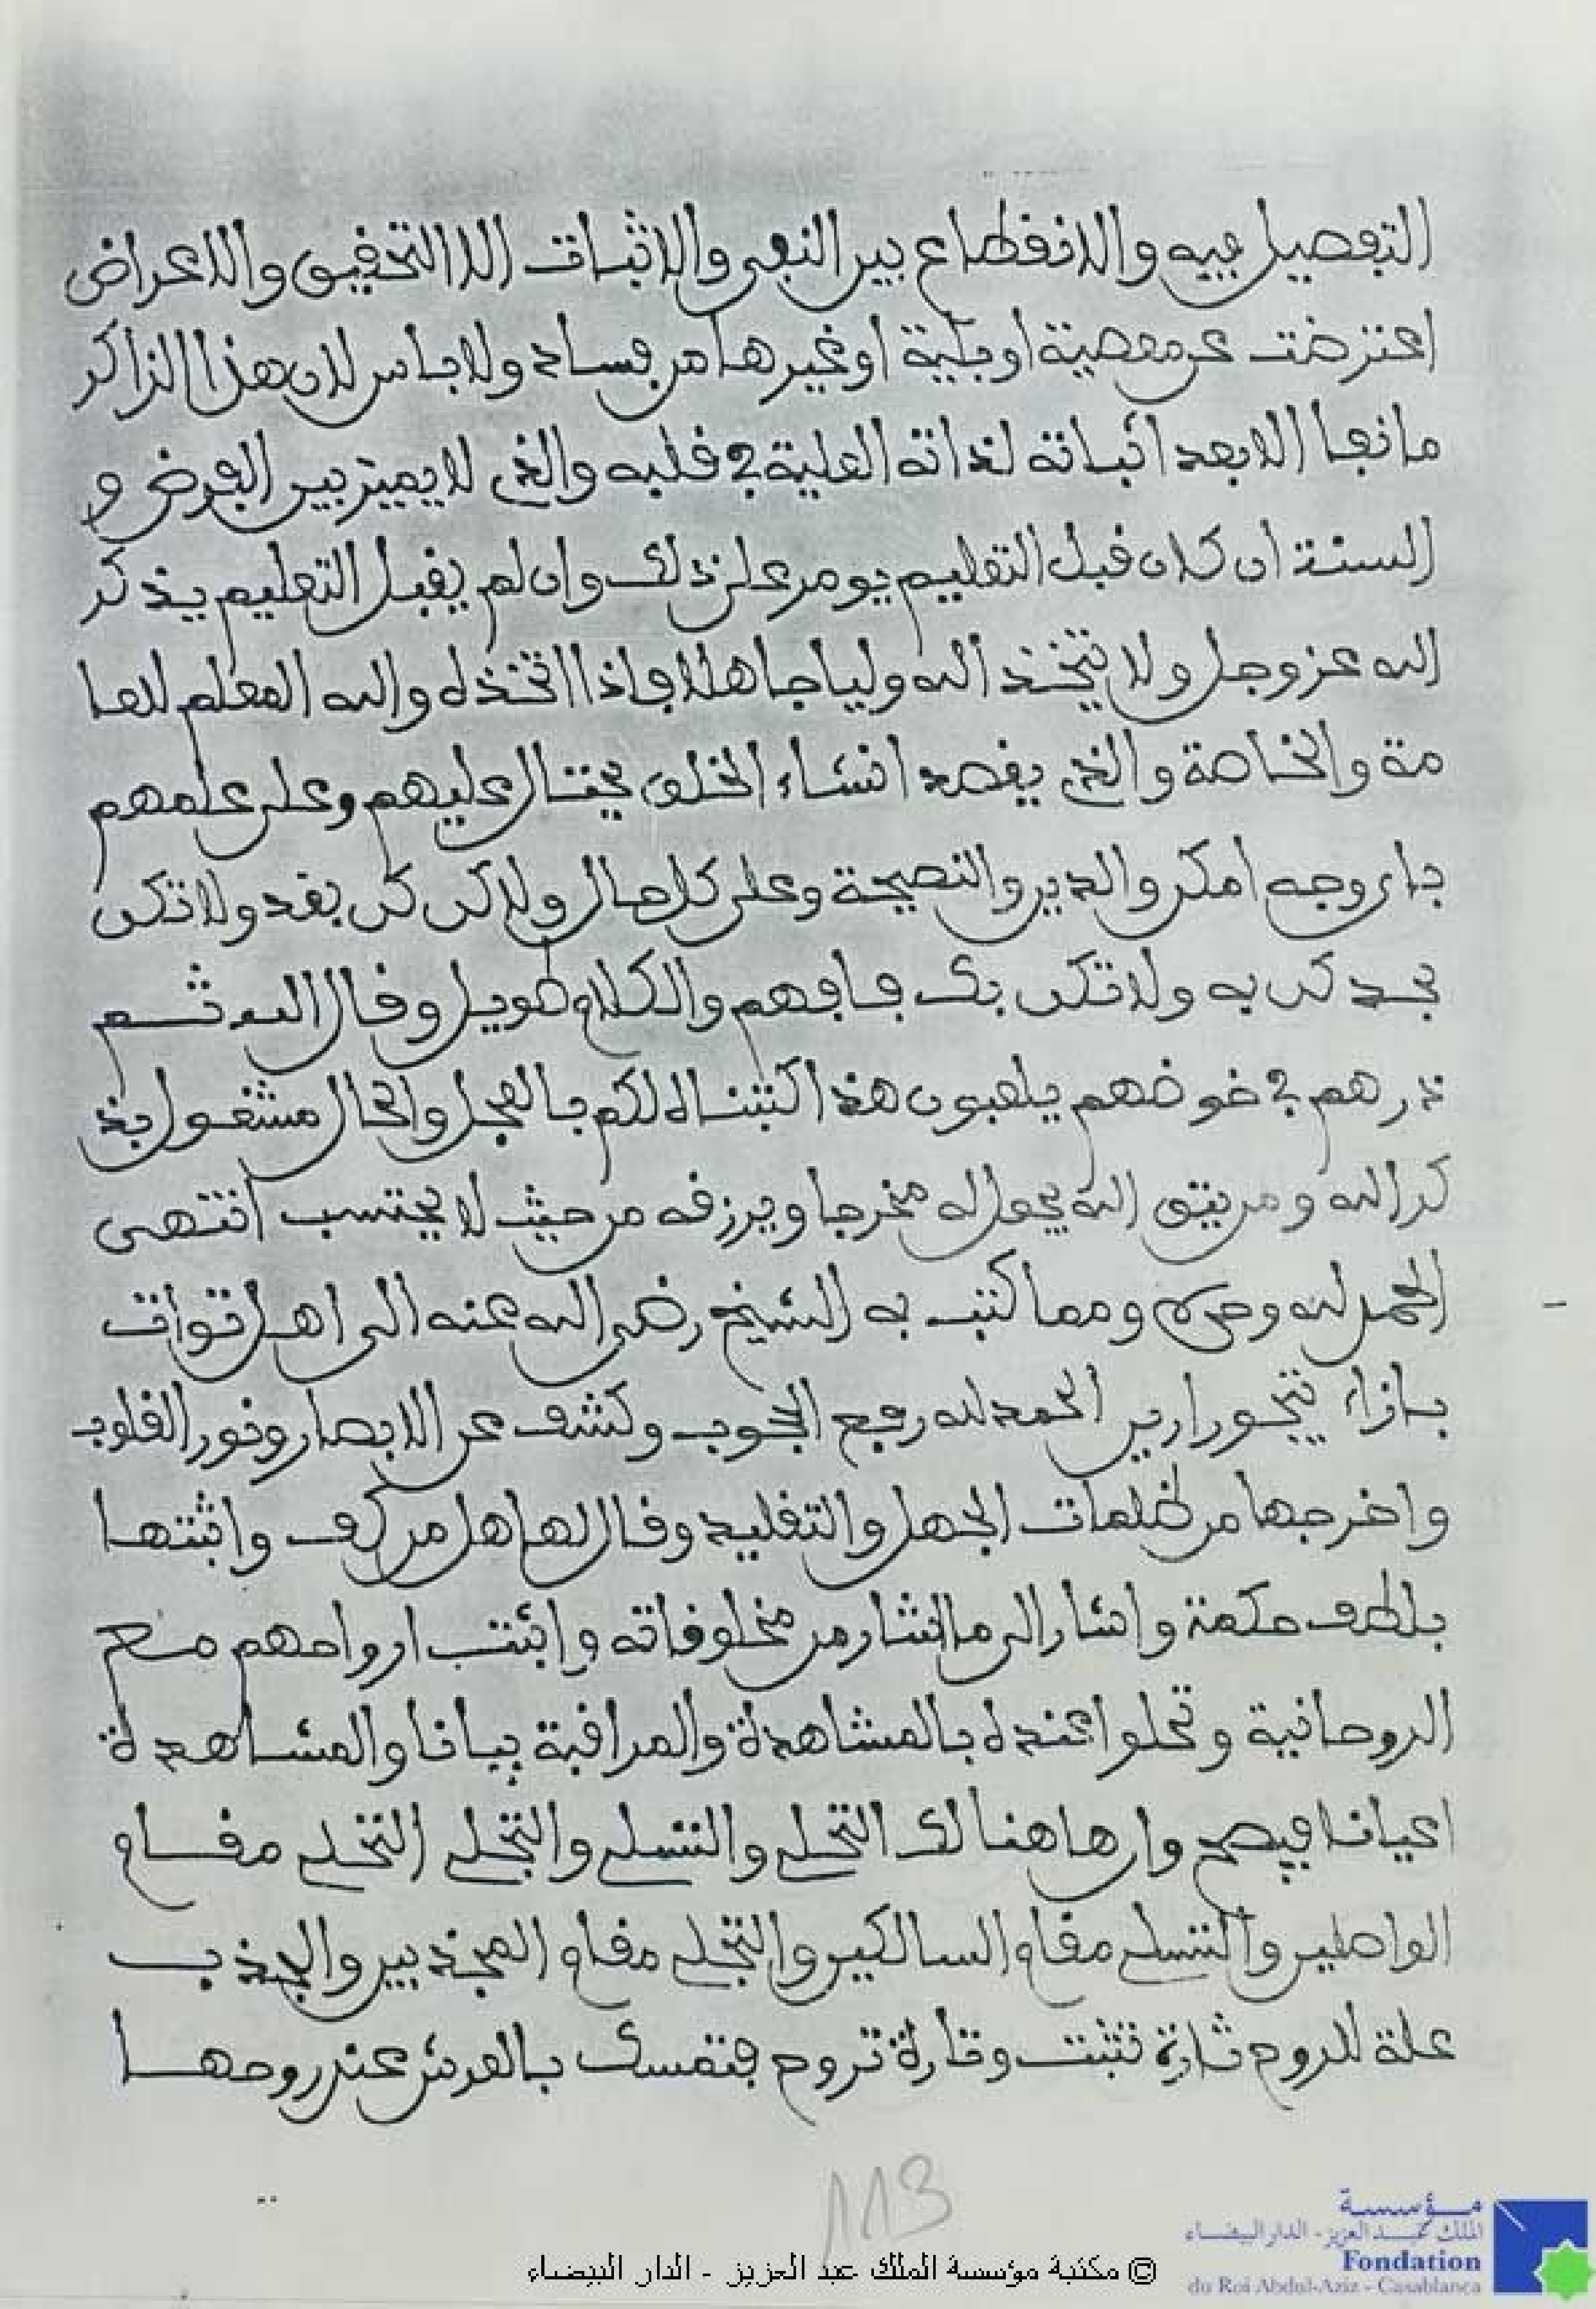 التفصيل فيه والانقطاع بين النفي والاثبات الا التحقيق والاعراض
اعترضت عن معصية او بلية او غيرها من فساد ولا باس لان هذا الذاكر
ما نفا الا بعد اثباته لذاته العلية في قلبه والذي لا يميز بين الفرض و
السنة ان كان قبل التعليم يومر على ذلك وان لم يقبل التعليم يذكر
الله عز وجل ولا يتخذ الله وليا جاهلا فاذا اتخذه والله المعلم للعا
مة والخاصة والذي يقصد انشاء الخلق يحتال عليهم وعلى علمهم
باي وجه امكن والدين والنصيحة وعلى كل حال ولاكن كن بقد ولا تكن
بجد كن به ولا تكن بك فافهم والكلام طويل وقال الله ثم
ذرهم في خوضهم يلعبون هذا كتبناه لكم بالعجل والحال مشغول بذ
كر الله ومن يتق الله يجعل له مخرجا ويرزقه من حيث لا يحتسب انتهى
الحمد لله وحده ومما كتب به الشيخ رضي الله عنه الى اهل توات
بازاء تيجورارين الحمد لله رفع الحجوب وكشف عن الابصار ونور القلوب
واخرجها من ظلمات الجهل والتقليد وقال لها هل من كهف واثبتها
بلطف حكمة واشار الى ما اشار من مخلوقاته واثبت ارواحهم مع
الروحانية وتحلوا عنده بالمشاهدة والمراقبة بيانا والمشاهدة
اعيانا فيصح وارها هنالك التحلي والتسلي والتجلي التخلي مقام
الواصلين والتسلي مقام السالكين والتجلي مقام المجذبين والجذب
علة للروح تارة تثبت وتارة تروح فتمسك بالعرش عند روحها
113
© مكتبة مؤسسة الملك عبد العزيز - الدار البيضاء
مؤسسة
الملك عبد العزيز - الدار البيضاء
Fondation
du Roi Abdul-Aziz - Casablanca